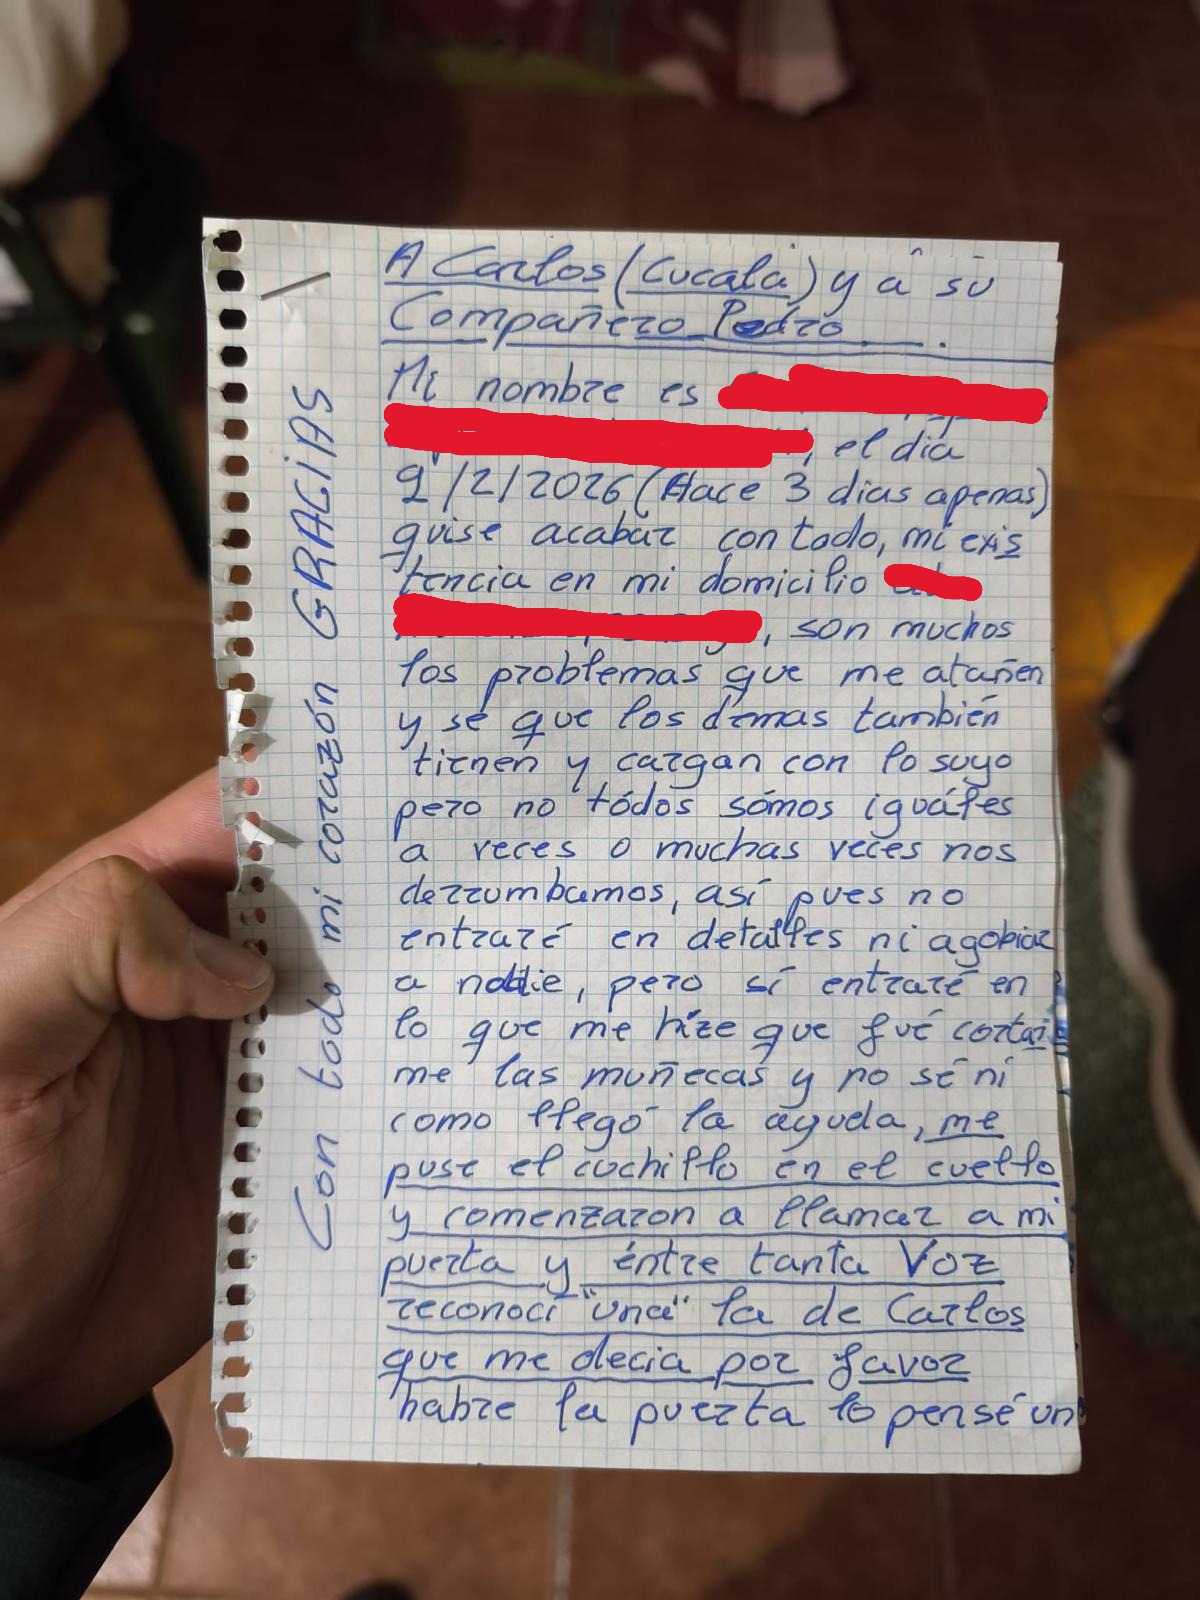 A Carlos (Cucala) y a su
Compañero Pedro
Mi nombre es
, el día
9/2/2026 (Hace 3 dias apenas)
quise acabar con todo, mi exis
tencia en mi domicilio
, son muchos
los problemas que me atañen
y se que los demas también
tienen y cargan con lo suyo
pero no tódos sómos iguáles
a veces o muchas veces nos
derrumbamos, así pues no
entraré en detalles ni agobiar
a nadie, pero sí entraré en
lo que me hize que fué cortar
me las muñecas y no sé ni
como llegó la ayuda, me
puse el cuchillo en el cuello
y comenzaron a llamar a mi
puerta y éntre tanta Voz
reconoci "una" la de Carlos
que me decia por favor
habre la puerta lo pensé un
Con todo mi corazón GRACIAS